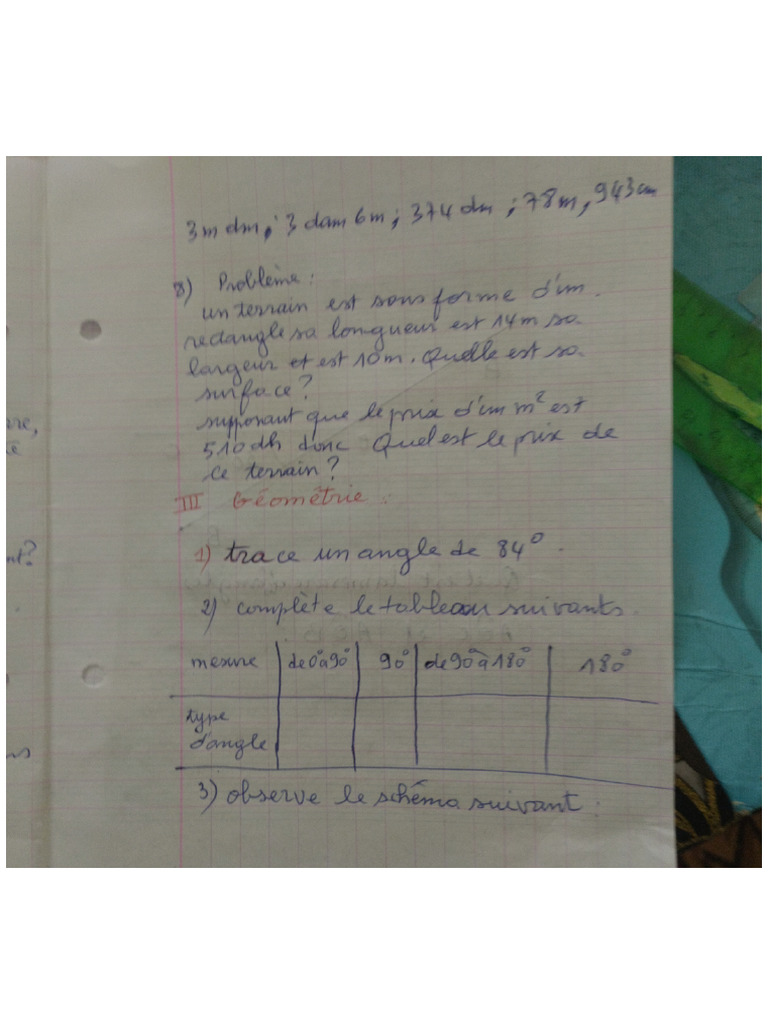 3m dm ; 3 dam 6m ; 374 dm ; 78m , 943 cm
8) Problème :
un terrain est sous forme d'un
rectangle sa longueur est 14m sa
largeur et est 10m. Quelle est sa
surface ?
supposant que le prix d'un m² est
510 dh donc Quel est le prix de
ce terrain ?
III Géométrie :
1) trace un angle de 84°.
2) complète le tableau suivants.
mesure de 0° à 90° 90° de 90° à 180° 180°
type
d'angle
3) observe le schéma suivant :
nt?